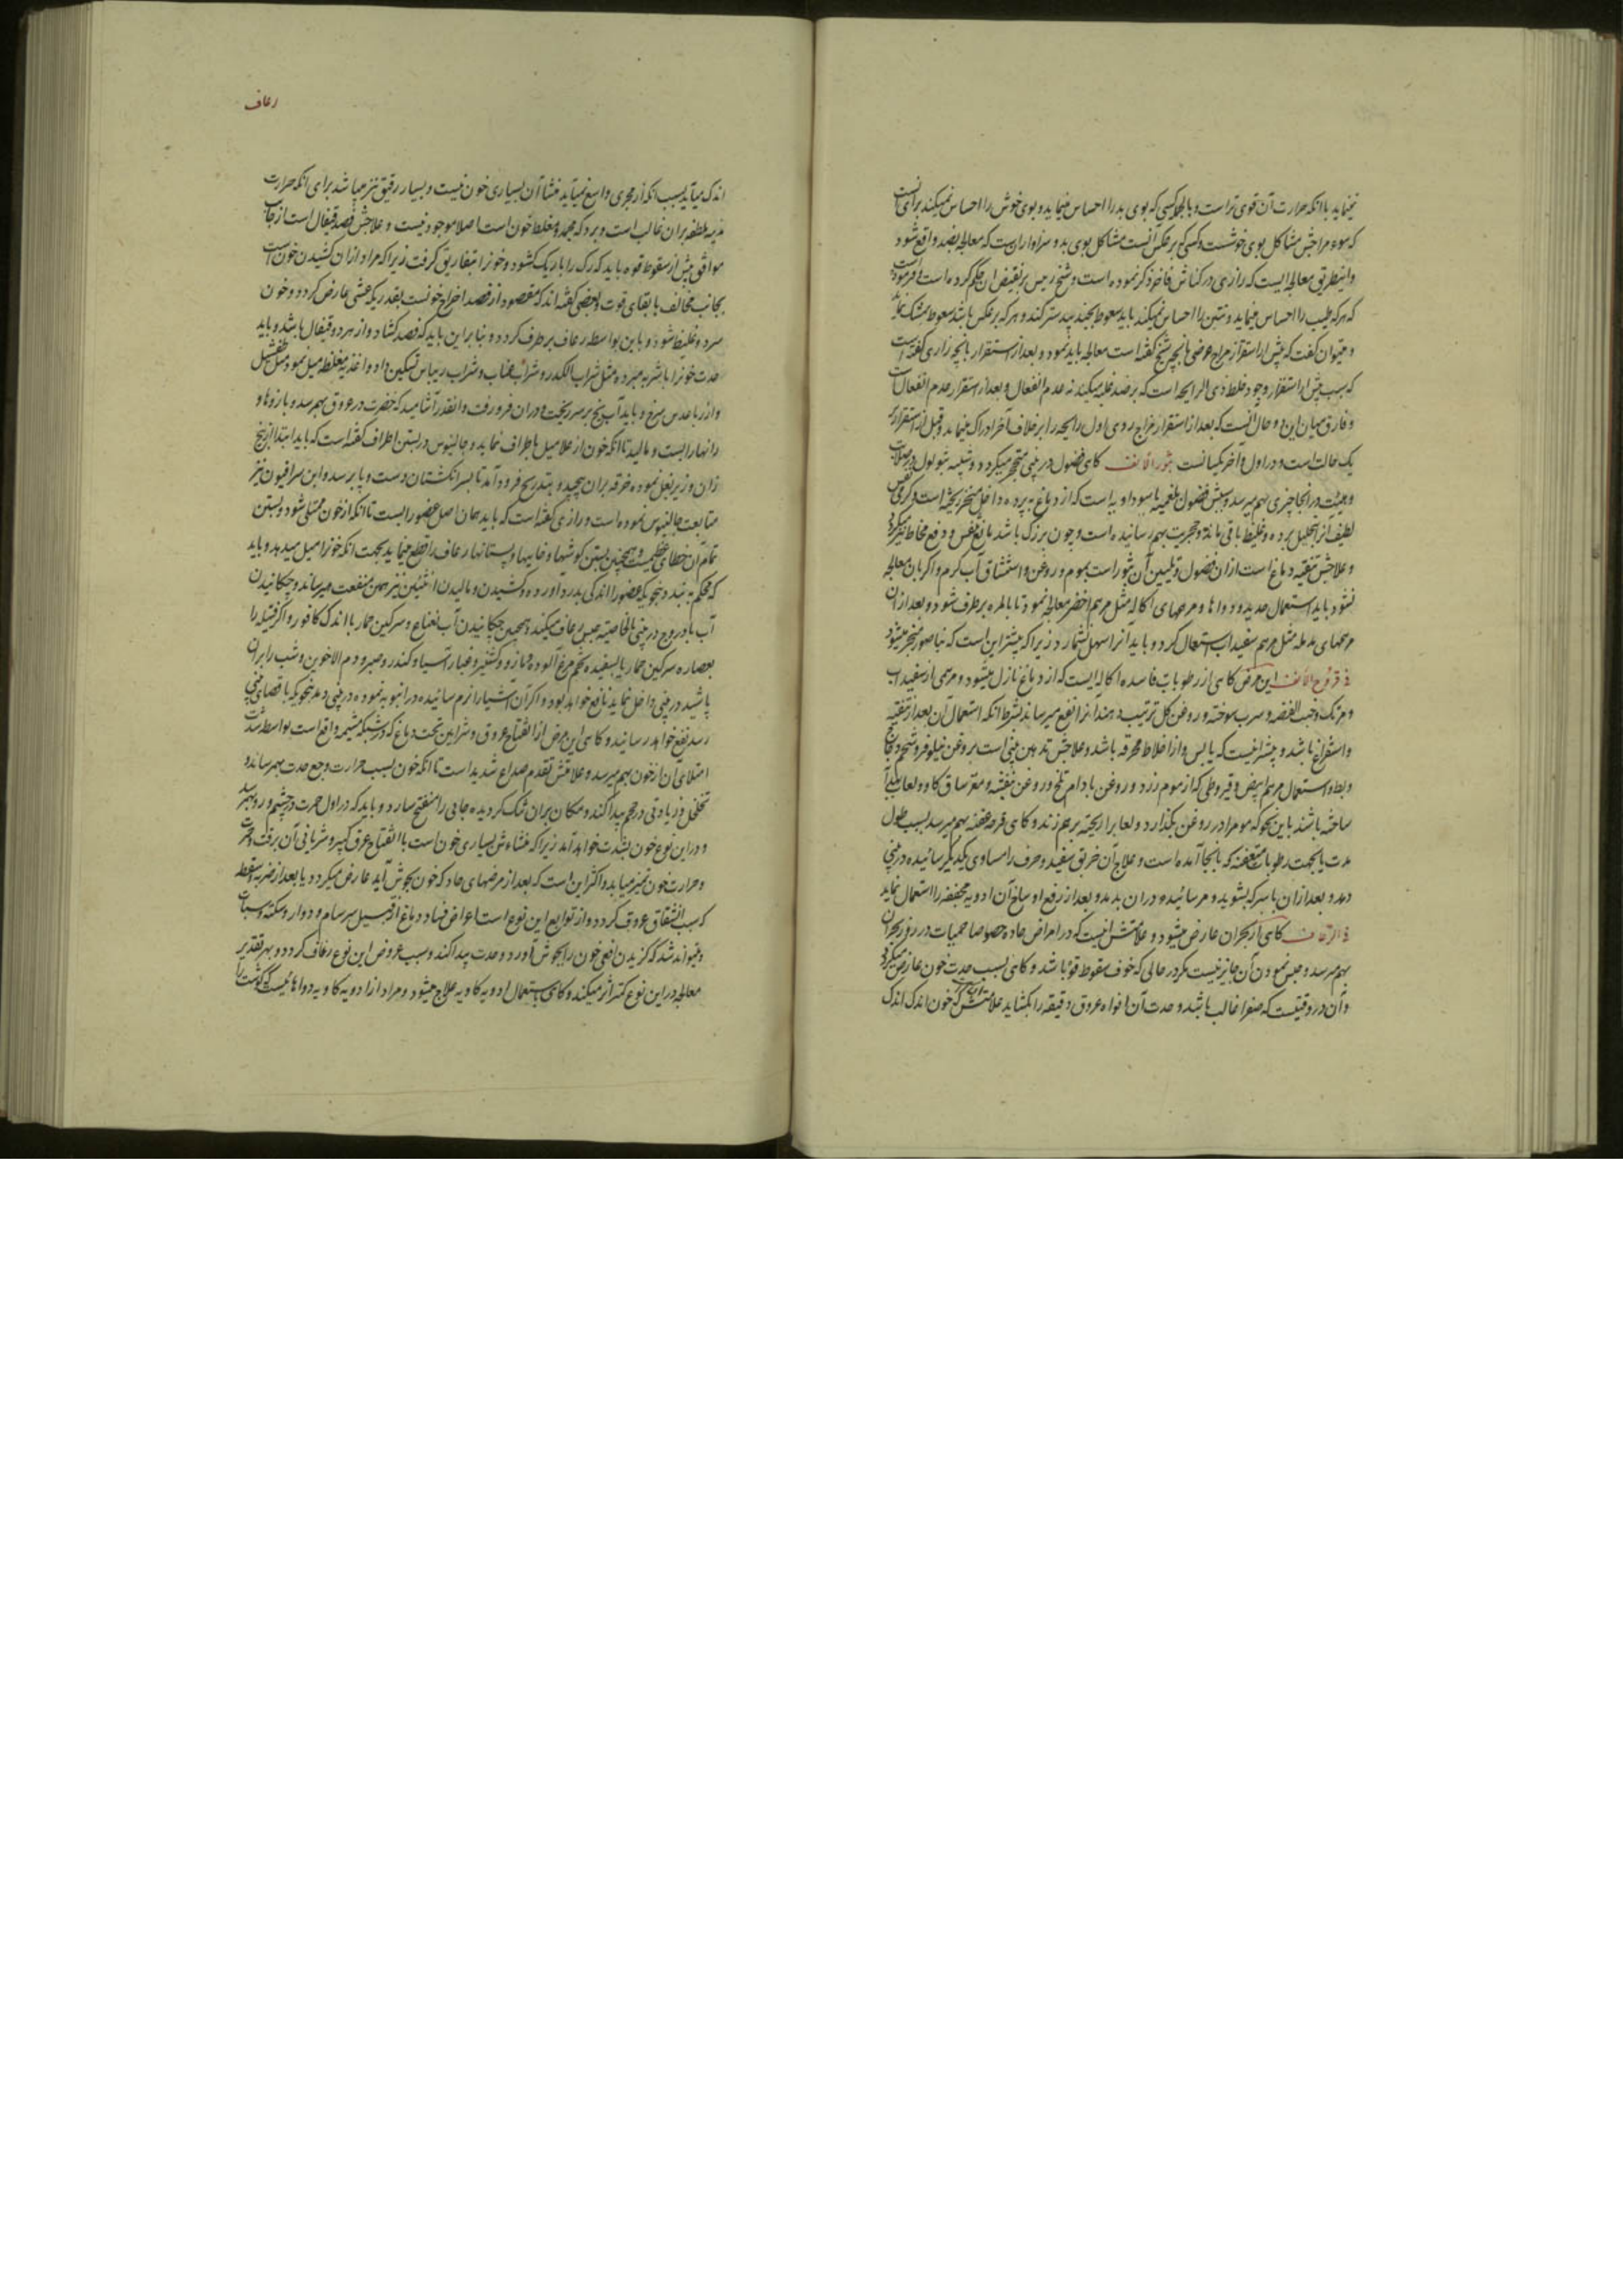 نمینماید با آنکه حرارت آن قوی تر است و بالجمله کسی که بوی بد را احساس مینماید و بوی خوش را احساس نمیکند برای انست
که سوء مزاجش مشاکل بوی خوشست و کسی که بر عکس آنست مشاکل بوی بد و سزاوار انست که معالجه بضد واقع شود
و اینطریق معالجه ایست که رازی در کناش فاخر ذکر نموده است و شیخ رئیس بر نقیض ان حکم کرده است و فرموده است
که هرکه طیب را احساس مینماید و نتین را احساس نمیکند باید سعوط بجند بیدستر کند و هرکه بر عکس باشد سعوط بمشک نماید
و میتوان گفت که پیش از استقرار مزاج عرضی بانچه شیخ گفته است معالجه باید نمود و بعد از استقرار بانچه رازی گفته است
که سبب پیش از استقرار وجود خلط ذی الرایحه است که بر ضد غلبه میکند نه عدم انفعال و بعد از استقرار عدم انفعال است
و فارق میان این دو حال انست که بعد از استقرار مزاج ردی اول رایحه را بر خلاف آخر ادراک مینماید و قبل از استقرار بر
یک حالت است و در اول و آخر یکسانست بثور الانف گاهی فضول در بینی متحجر میگردد و شبیه بثولول در صلابت
و هیئت در انجا چیزی بهم میرسد و سببش فضول بلغمیه یا سوداویه است که از دماغ به پرده داخل منخر ریخته است و گرمی نفس
لطیف انرا تحلیل برده و غلیظ باقی مانده و حجریت بهم رسانیده است و چون بزرگ باشد مانع نفس و دفع مخاط نیز میگردد
و علاجش تنقیه دماغ است از ان فضول و تلیین آن بثور است بموم و روغن و استنشاق آب گرم و اگر بان معالجه
نشود باید استعمال حدید و دواها و مرهمهای اکاله مثل مرهم اخضر معالجه نمود تا بالمره بر طرف شود و بعد از ان
مرهمهای مدمله مثل مرهم سفیداب استعمال کرد و باید آنرا سهل نشمارد زیرا که بیشتر این است که بناصور منجر میشود
فی قروح الانف این مرض گاهی از رطوبات فاسده اکاله ایست که از دماغ نازل میشود و مرهمی از سفیداب
و مرتک و خبث الفضه و سرب سوخته و روغن گل ترتیب دهند انرا نفع میرساند بشرط آنکه استعمال آن بعد از تنقیه
و استفراغ باشد و بیشتر انیست که یابس و از اخلاط محرقه باشد و علاجش تدهین بینی است بروغن نیلوفر و شحم دجاج
و بط و استعمال مرهم ابیض و قیروطی که از موم زرد و روغن بادام تلخ و روغن بنفشه و مغز ساق گاو و لعاب بهدانه
ساخته باشند باین نحو که موم را در روغن بگذارد و لعابرا ریخته بر هم زند و گاهی قرحه عفنه بهم میرسد بسبب طول
مدت یا بجهت رطوبات متعفنه که بانجا آمده است و علاج آن خربق سفید و حرف را مساوی یکدیگر سائیده در بینی
دمد و بعد از ان با سرکه بشوید و مر سائیده در ان بدمد و بعد از رفع اوساخ آن ادویه مجففه را استعمال نماید
فی الرعاف گاهی از بحران عارض میشود و علامتش انیست که در امراض حاده خصوصا حمیات در روز بحران
بهم میرسد و حبس نمودن آن جایز نیست مگر در حالی که خوف سقوط قوة باشد و گاهی بسبب حدت خون عارض میگردد
و آن در وقتیست که صفرا غالب باشد و حدت آن افواه عروق دقیقه را بگشاید علامتش آن است که خون اندک اندک
رعاف
اندک میآید بسبب آنکه از مجری واسع نمیآید منشأ آن بسیاری خون نیست و بسیار رقیق نیز میباشد برای آنکه حرارت
مذیبه ملطفه بران غالب است و برد که مجمد و مغلظ خون است اصلا موجود نیست و علاجش فصد قیفال است از جانب
موافق پیش از سقوط قوه باید که رگ را باریک گشود و خونرا بتفاریق گرفت زیرا که مراد از ان کشیدن خون است
بجانب مخالف با بقای قوت و بعضی گفته اند که مقصود از فصد اخراج خونست بقدریکه غشی عارض گردد و خون
سرد و غلیظ شود و باین بواسطه رعاف بر طرف گردد و بنا بر این باید که فصد گشاد و از هر دو قیفال باشد و باید
حدت خونرا باشربه مبرده مثل شراب الکدر و شراب عناب و شراب ریباس تسکین داد و اغذیه مغلظه میل نمود مثل طفشیل
و ارز با عدس سرخ و باید آب یخ بر سر ریخت و دران فرو رفت و انقدر آشامید که خضرت در عروق بهم رسد و بازوها و
رانها را بست و مالید تا آنکه خون از علا میل باطراف نماید و جالینوس در بستن اطراف گفته است که باید ابتدا از بیخ
ران و زیر بغل نموده خرقه بران پیچید و بتدریج فرود آمد تا بسر انگشتان دست و پا برسد و ابن سرافیون نیز
متابعت جالینوس نموده است و رازی گفته است که باید همان اصل عضو را بست تا آنکه از خون ممتلی شود و بستن
تمام آن خطای عظیمست و همچنین بستن گوشها و خایه ها و پستانها رعاف را قطع مینماید بجهت آنکه خونرا میل میدهد و باید
که محکم به بندد بنحویکه عضو را اندکی بدرد آورد و کشیدن و مالیدن انثیین نیز همین منفعت میرساند و چکانیدن
آب بادروج در بینی بالخاصیه حبس رعاف میکند و همچنین چکانیدن آب نعناع و سرگین حمار با اندک کافور و اگر فتیله را
بعصاره سرگین حمار یا بسفیده تخم مرغ آلوده و مازو و گشنیز و غبار آسیا و کندر و صبر و دم الاخوین و شب را بران
پاشیده در بینی داخل نماید نافع خواهد بود و اگر آن اشیا را نرم سائیده در انبوبه نموده در بینی دمد بنحویکه باقصای بینی
رسد نفع خواهد رسانید و گاهی این مرض از انفتاح عروق و شرایین تحت دماغ که در شبکه مشیمه واقع است بواسطه شدت
امتلای آن از خون بهم میرسد و علامتش تقدم صداع شدید است تا آنکه خون بسبب حرارت وجع حدت بهمرساند و
تخلخل و زیادتی در حجم پیدا کند و مکان بران تنگ گردیده جائی را منفتح سازد و باید که در اول حمرت در چشم و رو بهمرسد
و در این نوع خون بشدت خواهد آمد زیرا که منشاءش بسیاری خون است با انفتاح عرق کبیر و شریانی آن برقت و حمرت
و حرارت خون تمیز میابد و اکثر این است که بعد از مرضهای حاد که خون بجوش آید عارض میگردد یا بعد از ضربه و سقطه
که سبب انشقاق عروق گردد و از توابع این نوع است اعراض فساد دماغ از قبیل سرسام و دوار و سکته و سبات
و میتواند شد که گزیدن افعی خون را بجوش آورد و حدت پیدا کند و سبب عروض این نوع رعاف گردد و بهر تقدیر
معالجه در این نوع کمتر اثر میکند و گاهی باستعمال ادویه کاویه علاج میشود و مراد از ادویه کاویه دواهائیست که گوشت را